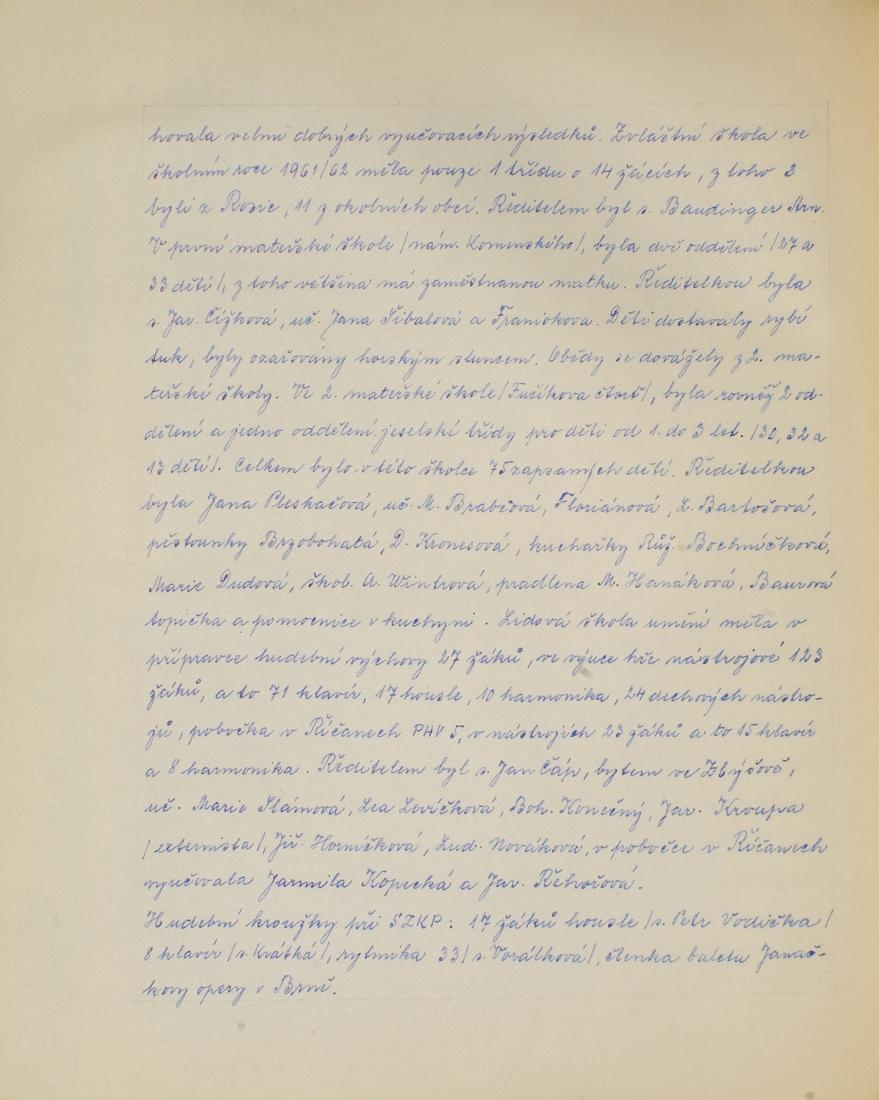 hovala velmi dobrých vyučovacích výsledků. Zvláštní škola ve
školním roce 1961/62 měla pouze 1 třídu o 14 žácích, z toho 3
byli z Rosic, 11 z okolních obcí. Ředitelem byl s. Baudinger Arn.
V první mateřské škole /nám. Komenského/, byla dvě oddělení /27 a
33 dětí/, z toho většina má zaměstnanou matku. Ředitelkou byla
s. Jar. Čížková, uč. Jana Šibalová a Franiokova. Děti dostavaly rybí
tuk, byly ozařovány horským sluncem. Obědy se dovážely z 2. ma-
teřské školy. Ve 2. mateřské škole /Fučíkova čtvrť/, byla rovněž 2 od-
dělení a jedno oddělení jeselské třídy pro děti od 1. do 3 let. /30, 32 a
13 dětí/. Celkem bylo v této školce 75 zapsaných dětí. Ředitelkou
byla Jana Pleskačová, uč. M. Brabcová, Floriánová, L. Bartošová,
pěstounky Brzobohatá, D. Kronesová, kuchařky Růž. Bochníčková,
Marie Dudová, škol. A. Wintrová, pradlena M. Hanáková, Baurová
topička a pomocnice v kuchyni. Lidová škola umění měla v
přípravce hudební výchovy 27 žáků, ve výuce hře nástrojové 123
žáků, a to 71 klavír, 17 housle, 10 harmonika, 24 dechových nástro-
jů, pobočka v Říčanech PHV 5, v nástrojích 23 žáků a to 15 klavír
a 8 harmonika. Ředitelem byl s. Jan Čáp, bytem ve Zbýšově,
uč. Marie Slámová, Lea Levíčková, Boh. Konečný, Jar. Kroupa
/externista/, Jiř. Horníčková, Lud. Nováková, v pobočce v Říčanech
vyučovala Jarmila Kopecká a Jar. Řehořová.
Hudební kroužky při SZKP: 17 žáků housle /s. Petr Vodička/
8 klavír /s. Krátká/, rytmika 33 /s. Vorálková/, členka baletu Janáč-
kovy opery v Brně.